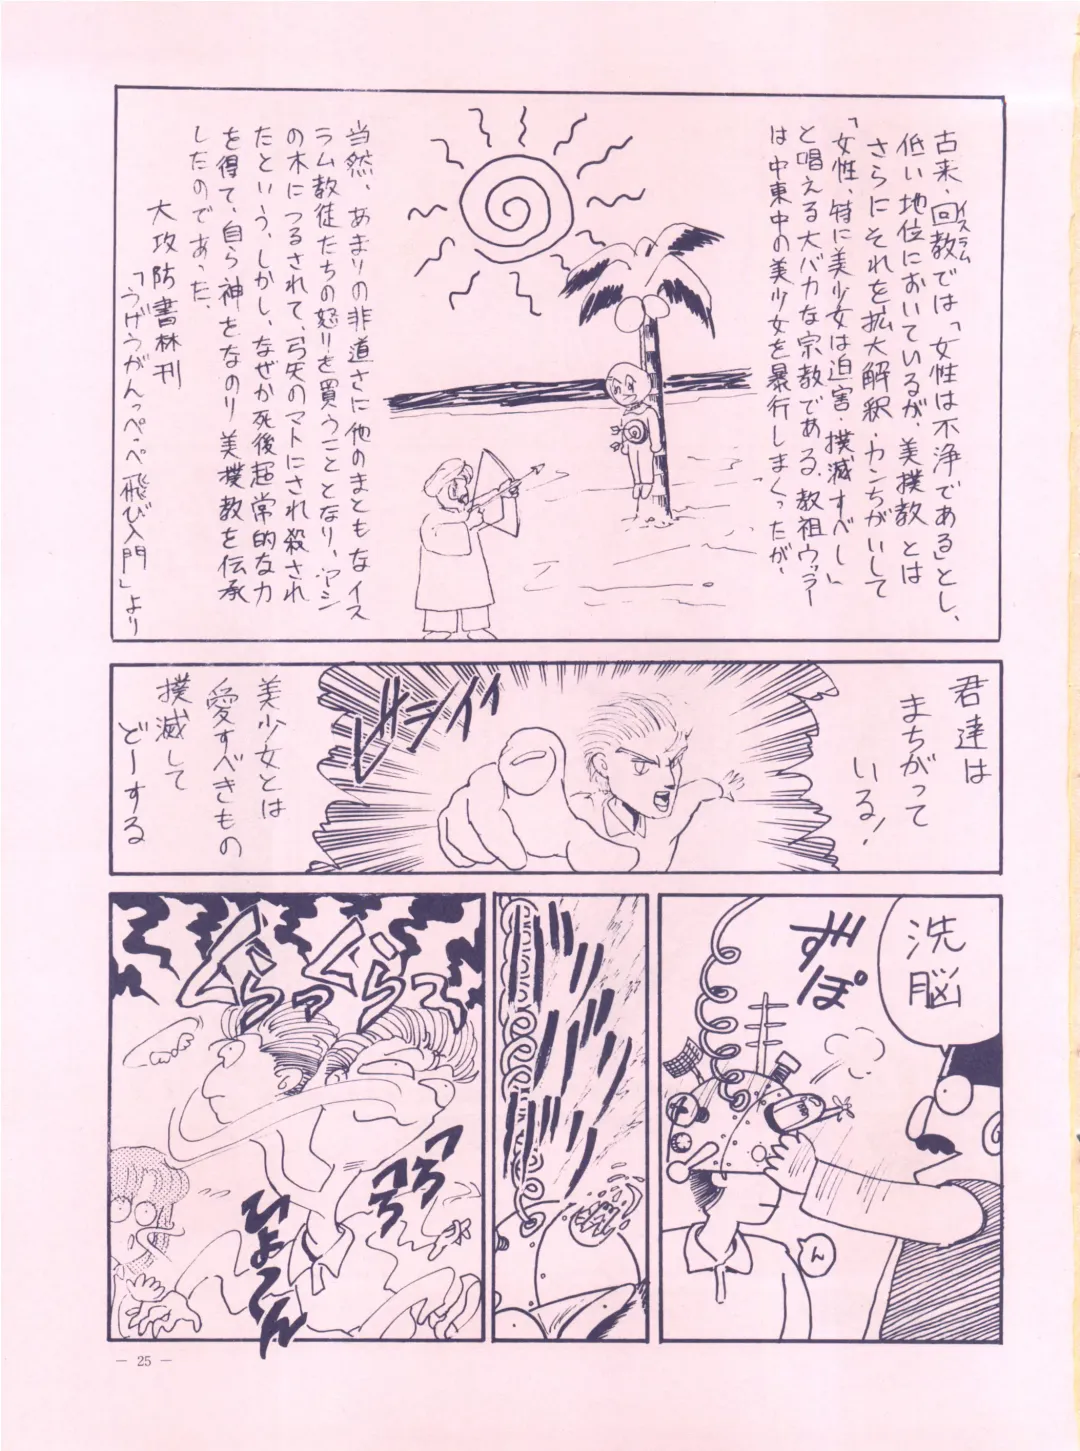 古来、回教では「女性は不浄である」とし、
イスラム
低い地位においているが、美撲教とは
さらにそれを拡大解釈・カンちがいして
「女性、特に美少女は迫害・撲滅すべし」
と唱える大バカな宗教である。教祖ウッラー
は中東中の美少女を暴行しまくったが、
当然、あまりの非道さに他のまともなイス
ラム教徒たちの怒りを買うこととなり、ヤシ
の木につるされて、弓矢のマトにされ殺され
たという。しかし、なぜか死後超常的な力
を得て、自ら神をなのり美撲教を伝承
したのであった。
大攻防書林刊
「うげうがんっぺっぺ飛び入門」より
君達は
まちがって
いる!
ビシイイ
美少女とは
愛すべきもの
撲滅して
どーする
洗脳
ずぽ
ん
ぐらっ
ぐらっ
ひょ
ん
— 25 —